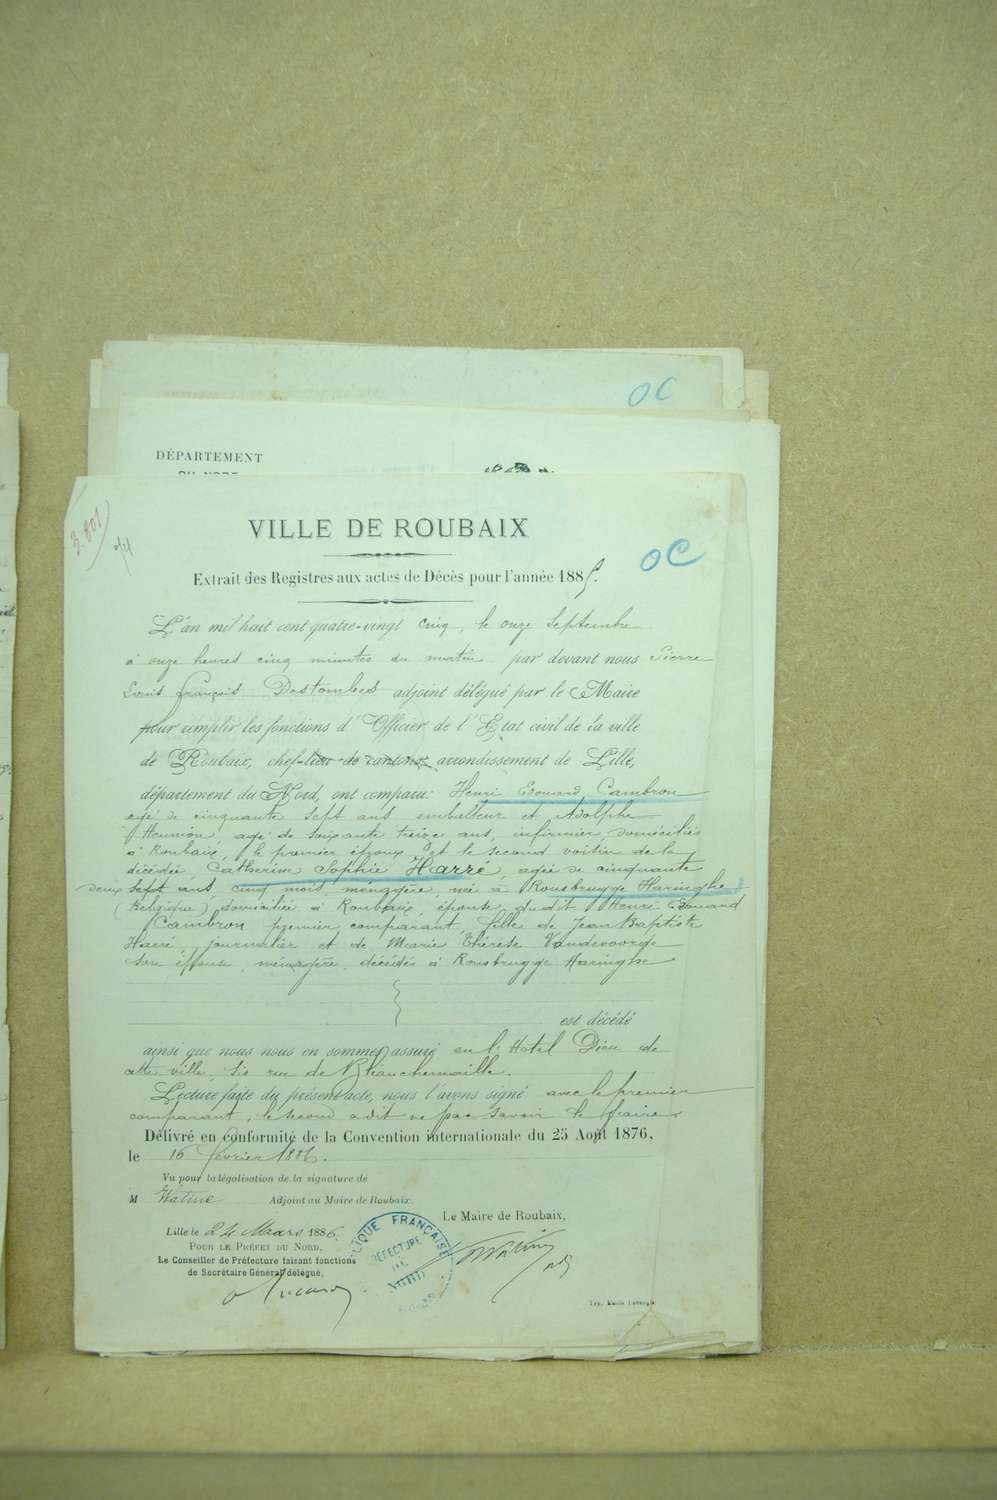 OC
DÉPARTEMENT
DU NORD
3.801
VILLE DE ROUBAIX
OC
Extrait des Registres aux actes de Décès pour l'année 1885.
L'an mil huit cent quatre-vingt cinq, le onze Septembre
à onze heures cinq minutes du matin par devant nous Pierre
Louis François Destombes adjoint délégué par le Maire
pour remplir les fonctions d'Officier de l'Etat civil de la ville
de Roubaix, chef-lieu de canton, arrondissement de Lille,
département du Nord, ont comparu: Henri Edouard Cambron
agé de cinquante sept ans emballeur et Adolphe
Meunion, agé de soixante treize ans, infirmier, domiciliés
à Roubaix, le premier époux et le second voisin de la
décédée, Catherine Sophie Harré, agée de cinquante
deux sept ans, cinq mois, ménagère, née à Rousbrugge Haringhe
(Belgique), domiciliée à Roubaix, épouse dudit Henri Edouard
Cambron premier comparant, fille de Jean Baptiste
Harré, journalier et de Marie Thérèse Vandevoorde
son épouse, ménagère, décédés à Rousbrugge Haringhe
est décédé
ainsi que nous nous en sommes assuré en l'Hôtel Dieu de
cette ville, sis rue de Blanchemaille.
Lecture faite du présent acte, nous l'avons signé avec le premier
comparant, le second a dit ne pas savoir le faire.
Délivré en conformité de la Convention internationale du 25 Août 1876,
le 16 février 1886.
Vu pour la légalisation de la signature de
M Watine Adjoint au Maire de Roubaix.
Le Maire de Roubaix,
Lille le 24 Mars 1886.
POUR LE PRÉFET DU NORD,
Le Conseiller de Préfecture faisant fonctions
de Secrétaire Général délégué,
RÉPUBLIQUE FRANÇAISE
PRÉFECTURE
DU
NORD